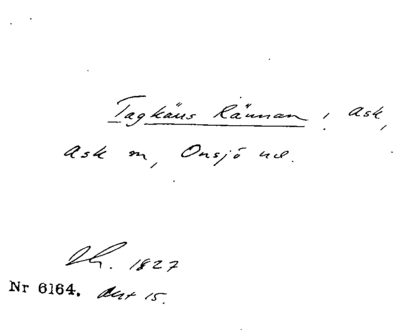 Tagkäns Rännan i Ask,
Ask sn, Onsjö hd.
Sk. 1827
Nr 6164. Avt 15.